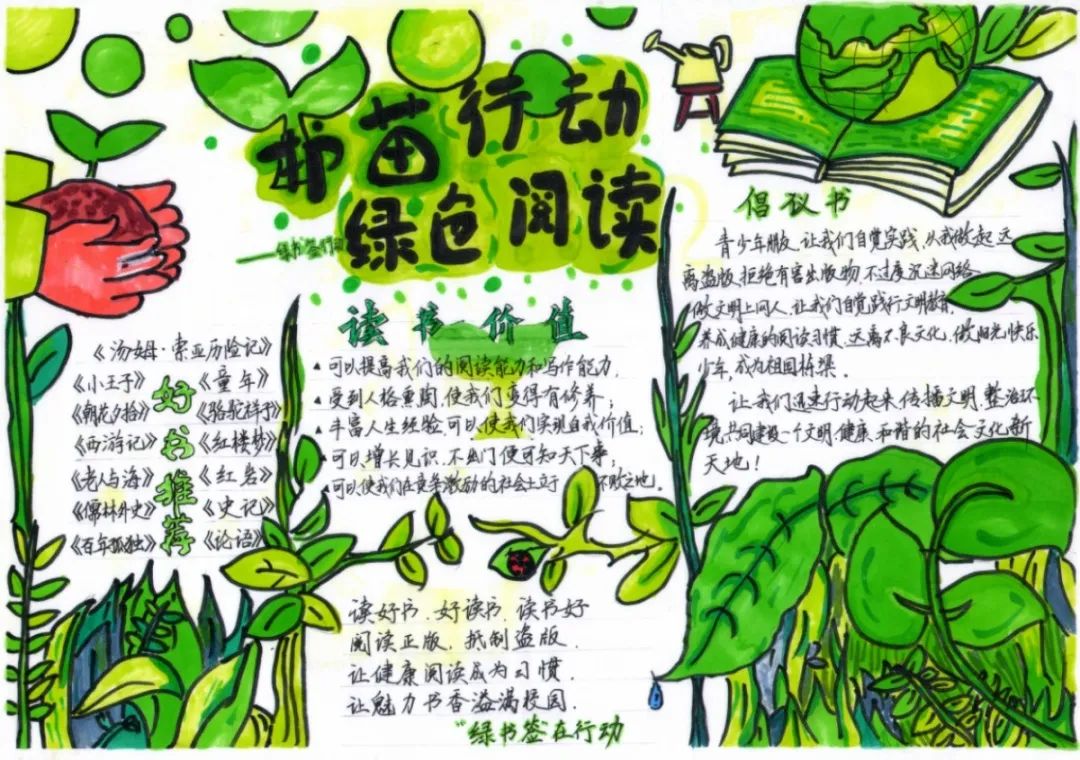 护苗行动
绿色阅读
——绿书签行动
好书推荐
《汤姆·索亚历险记》
《小王子》
《童年》
《朝花夕拾》
《骆驼祥子》
《西游记》
《红楼梦》
《老人与海》
《红岩》
《儒林外史》
《史记》
《百年孤独》
《论语》
读书价值
▲可以提高我们的阅读能力和写作能力,
▲受到人格熏陶,使我们变得有修养;
▲丰富人生经验,可以使我们实现自我价值;
▲可以增长见识,不出门便可知天下事;
▲可以使我们在竞争激励的社会立于 不败之地。
读好书.好读书.读书好
阅读正版,抵制盗版.
让健康阅读成为习惯.
让魅力书香溢满校园.
“绿书签在行动
倡议书
青少年朋友,让我们自觉实践,从我做起远
离盗版,拒绝有害出版物,不过度沉迷网络
做文明上网人,让我们自觉践行文明教育,
养成健康的阅读习惯,远离不良文化,做阳光快乐
少年,成为祖国栋梁.
让我们迅速行动起来,传播文明,整治环
境,共同建设一个文明.健康.和谐的社会文化新
天地!